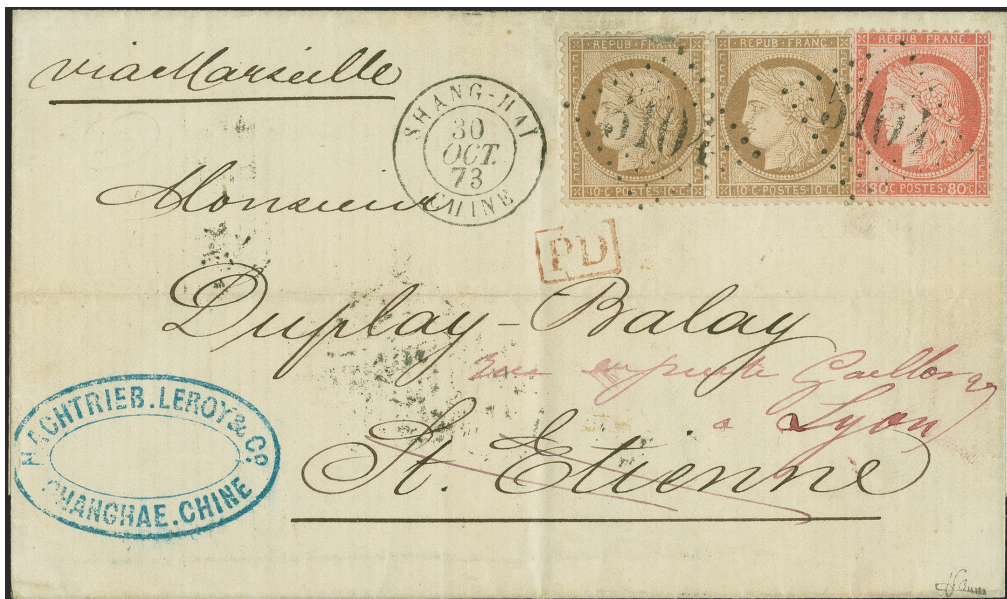 via Marseille
SHANG-HAI
30
OCT.
73
CHINE
REPUB FRANC
10 C POSTES 10 C
REPUB FRANC
10 C POSTES 10 C
REPUB FRANC
80 C POSTES 80 C
5104
5104
PD
Monsieur
Duplay-Balay
à Lyon
St. Etienne
NACHTRIEB. LEROY & CO.
SHANGHAE. CHINE